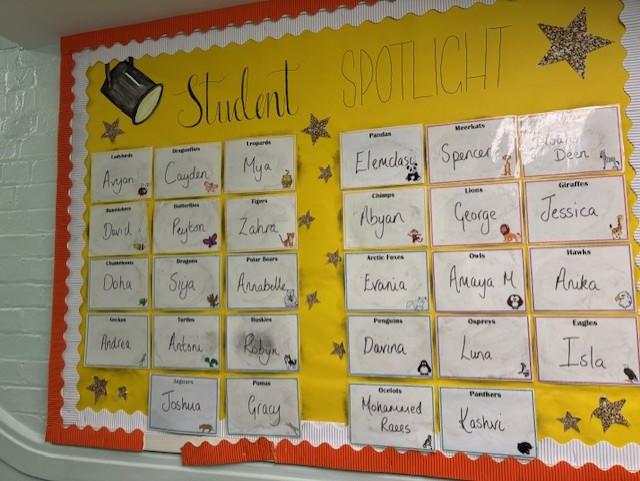 Student SPOTLIGHT
Ladybirds
Avyan
Dragonflies
Cayden
Leopards
Mya
Pandas
Meerkats
Spencer
Deen
David
Butterflies
Peyton
Tigers
Zahra
Chimps
Abyan
Lions
George
Giraffes
Jessica
Chameleons
Doha
Dragons
Siya
Polar Bears
Annabelle
Arctic Foxes
Evania
Owls
Amaya M
Hawks
Anika
Geckos
Andrea
Turtles
Antoni
Huskies
Robyn
Penguins
Davina
Ospreys
Luna
Eagles
Isla
Jaguars
Joshua
Pumas
Gracy
Ocelots
Mohammed
Raees
Panthers
Kashvi